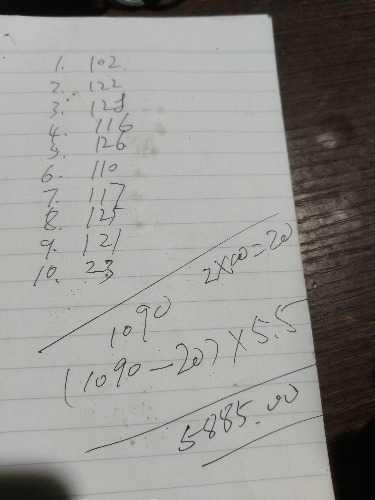 1. 102
2. 122
3. 128
4. 116
5. 126
6. 110
7. 117
8. 125
9. 121
10. 23
2×10=20
1090
(1090-20)×5.5
5885.00